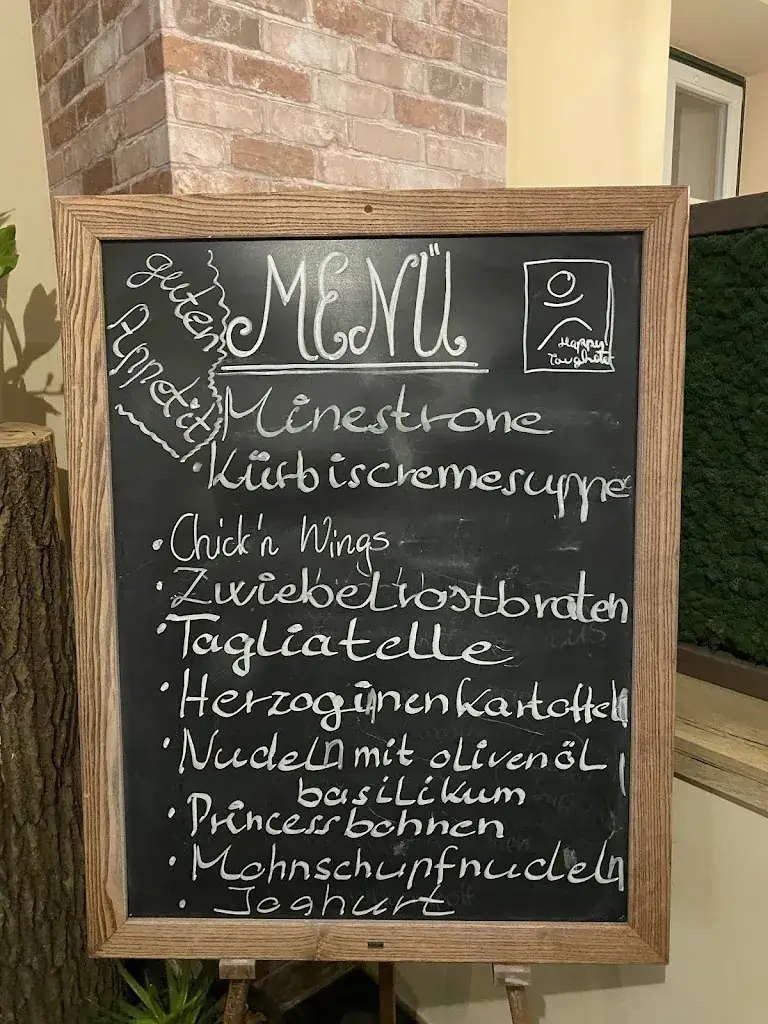 guten
Appetit
MENÜ
Happy
Minestrone
• Kürbiscremesuppe
• Chick'n Wings
• Zwiebelrostbraten
• Tagliatelle
• Herzoginnenkartoffeln
• Nudeln mit olivenöl
basilikum
• Princessbohnen
• Mohnschupfnudeln
• Joghurt